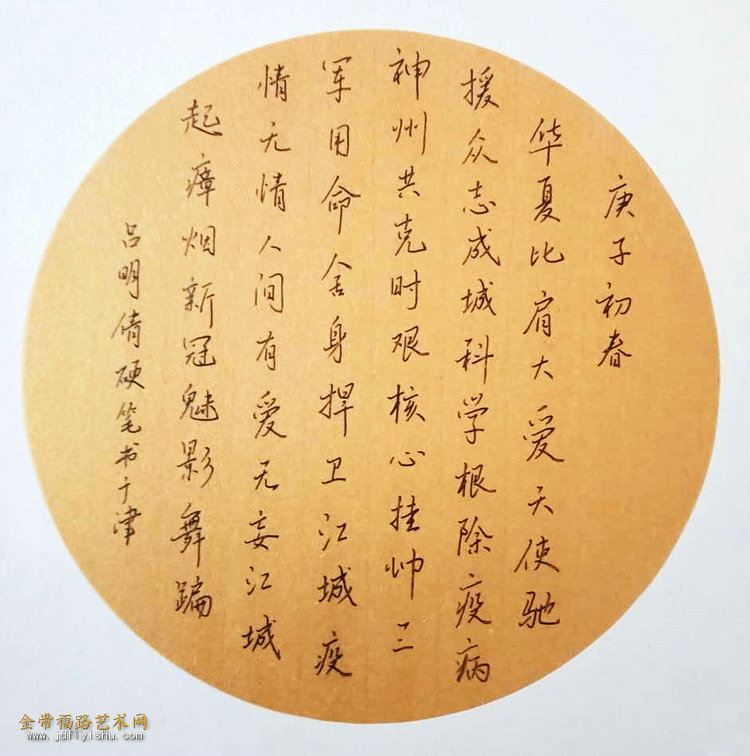 庚子初春
华夏比肩大爱天使驰
援众志成城科学根除疫病
神州共克时艰核心挂帅三
军用命舍身捍卫江城疫
情无情人间有爱无妄江城
起瘴烟新冠魅影舞蹁
吕明倩硬笔书于津
金带福路艺术网
www.jdflyishu.com